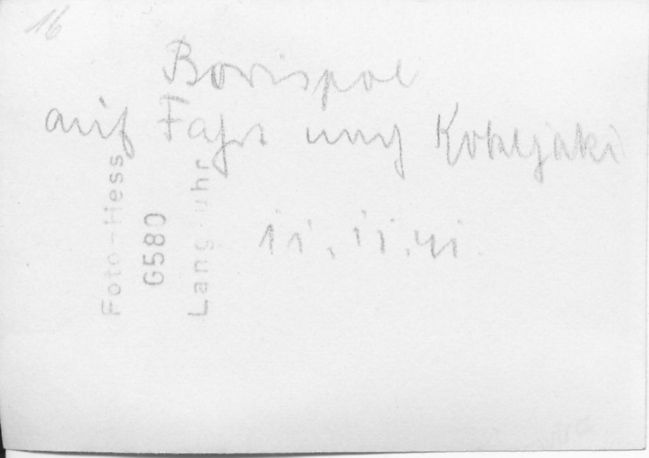 16
Borispol
auf Fahrt nach Kobeljaki
11.11.41.
Foto-Hess
G580
Langfuhr